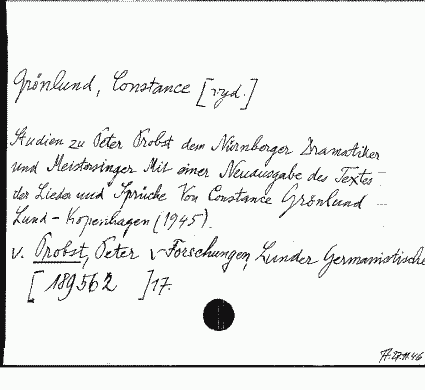 Grönlund, Constance [vyd.]
Studien zu Peter Probst dem Nürnberger Dramatiker
und Meistersinger Mit einer Neuausgabe des Textes
der Lieder und Sprüche Von Constance Grönlund
Lund-Kopenhagen (1945).
v. Probst, Peter v Forschungen, Lunder Germanistische
[ 189562 ] 17.